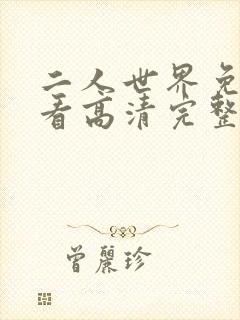 二人世界免
看高清完整
曾丽珍